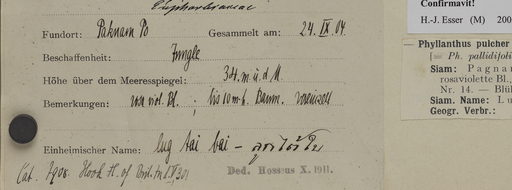 Euphorbiaceae
Fundort: Paknam Po Gesammelt am: 24. IX. 04.
Beschaffenheit: Jungle
Höhe über dem Meeresspiegel: 34 m. ü. d. M.
Bemerkungen: rosa viol. Bl. ; bis 10 m h. Baum.
Einheimischer Name: lug tai bai – ลูกใต้ใบ
Cat. Hook Fl. of Brit. Ind.
Ded. Hosseus X. 1911.
Confirmavit!
H.-J. Esser (M) 200
Phyllanthus pulcher
[= Ph. pallidifoli
Siam: Pagnam
rosaviolette Bl.,
Nr. 14. — Blüh
Siam. Name: Lu
Geogr. Verbr.: